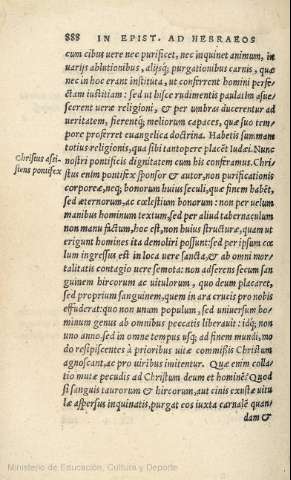 888 IN EPIST. AD HEBRAEOS
cum cibus uere nec purificet, nec inquinet animum, in
uarijs ablutionibus, alijsq; purgationibus carnis, quæ
nec in hoc erant instituta, ut conferrent homini perfe-
ctam iustitiam: sed ut hisce rudimentis paulatim assue-
scerent ueræ religioni, & per umbras ducerentur ad
ueritatem, fierentq; meliorum capaces, quæ suo tem-
pore proferret euangelica doctrina. Habetis summam
totius religionis, qua sibi tantopere placēt Iudæi. Nunc
Christus assi-
stens pontifex
nostri pontificis dignitatem cum his conferamus. Chri-
stus enim pontifex sponsor & autor, non purificationis
corporeæ, neq; bonorum huius seculi, quæ finem habēt,
sed æternorum, ac cœlestium bonorum: non per uelum
manibus hominum textum, sed per aliud tabernaculum
non manu factum, hoc est, non huius structuræ, quam ut
erigunt homines ita demoliri possunt: sed per ipsum cœ-
lum ingressus est in loca uere sancta, & ab omni mor-
talitatis contagio uere semota: non adferens secum san-
guinem hircorum ac uitulorum, quo deum placaret,
sed proprium sanguinem, quem in ara crucis pro nobis
effuderat: quo non unum populum, sed uniuersum ho-
minum genus ab omnibus peccatis liberauit: idq; non
uno anno, sed in omne tempus usq; ad finem mundi, mo-
do resipiscentes à prioribus uitæ commissis Christum
agnoscant, ac pro uiribus imitentur. Quæ enim colla-
tio mutæ pecudis ad Christum deum et hominē? Quod
si sanguis taurorum & hircorum, aut cinis exustæ uitu
læ aspersus inquinatis, purgat eos iuxta carnalē quan-
dam &
Ministerio de Educación, Cultura y Deporte